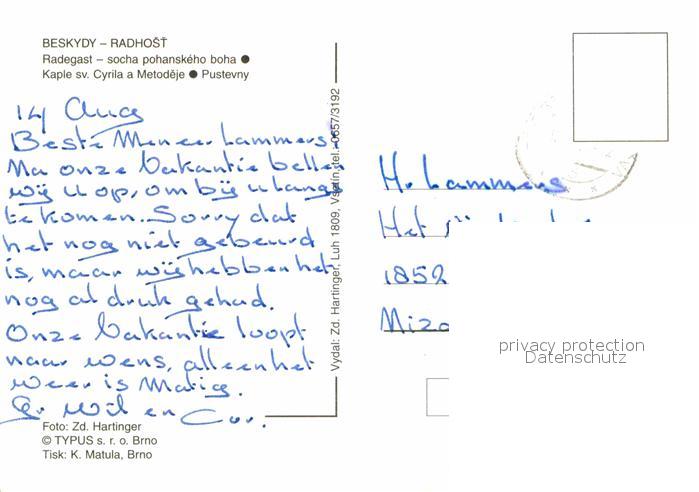 BESKYDY – RADHOŠŤ
Radegast – socha pohanského boha ●
Kaple sv. Cyrila a Metoděje ● Pustevny
14 Aug
Beste Meneer Lammers.
Na onze Vakantie bellen
wij U op, om bij U langs
te komen. Sorry dat
het nog niet gebeurd
is, maar wij hebben het
nog al druk gehad.
Onze Vakantie loopt
naar wens, alleen het
weer is Matig.
Gr Wil en Cor.
Foto: Zd. Hartinger
© TYPUS s. r. o. Brno
Tisk: K. Matula, Brno
Vydal: Zd. Hartinger, Luh 1809, Vsetín, tel.: 0657/3192
H. Lammers
Het
1852
privacy protection
Datenschutz